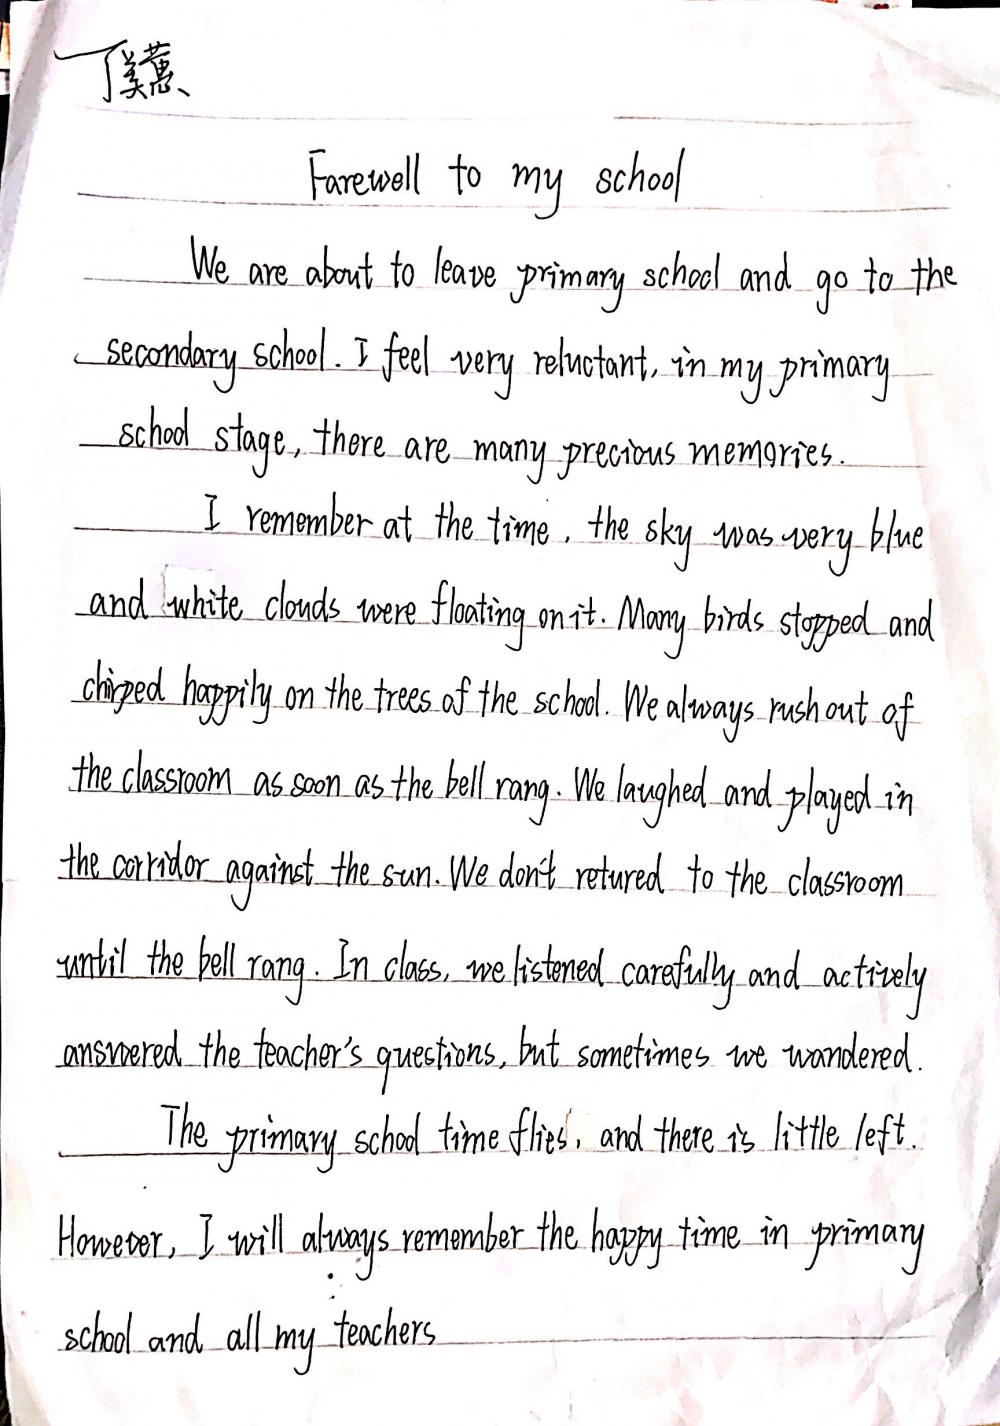 丁美蕙
Farewell to my school
We are about to leave primary school and go to the
secondary school. I feel very reluctant, in my primary
school stage, there are many precious memories.
I remember at the time, the sky was very blue
and white clouds were floating on it. Many birds stopped and
chirped happily on the trees of the school. We always rush out of
the classroom as soon as the bell rang. We laughed and played in
the corridor against the sun. We don't retured to the classroom
until the bell rang. In class, we listened carefully and actively
answered the teacher's questions, but sometimes we wandered.
The primary school time flies, and there is little left.
However, I will always remember the happy time in primary
school and all my teachers